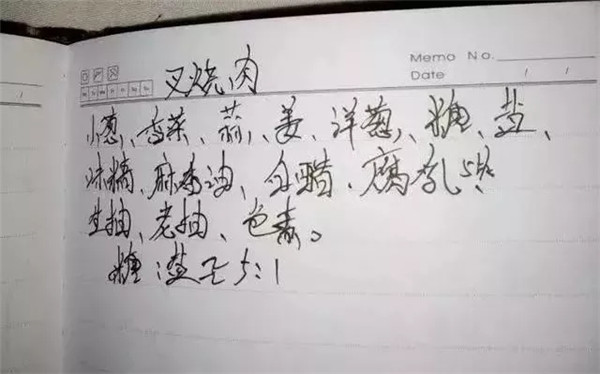 Memo No.
Date / /
叉烧肉
小葱、香菜、蒜、姜、洋葱、糖、盐、
味精、麻香油、白醋、腐乳5块
生抽、老抽、色素。
糖:盐=5:1